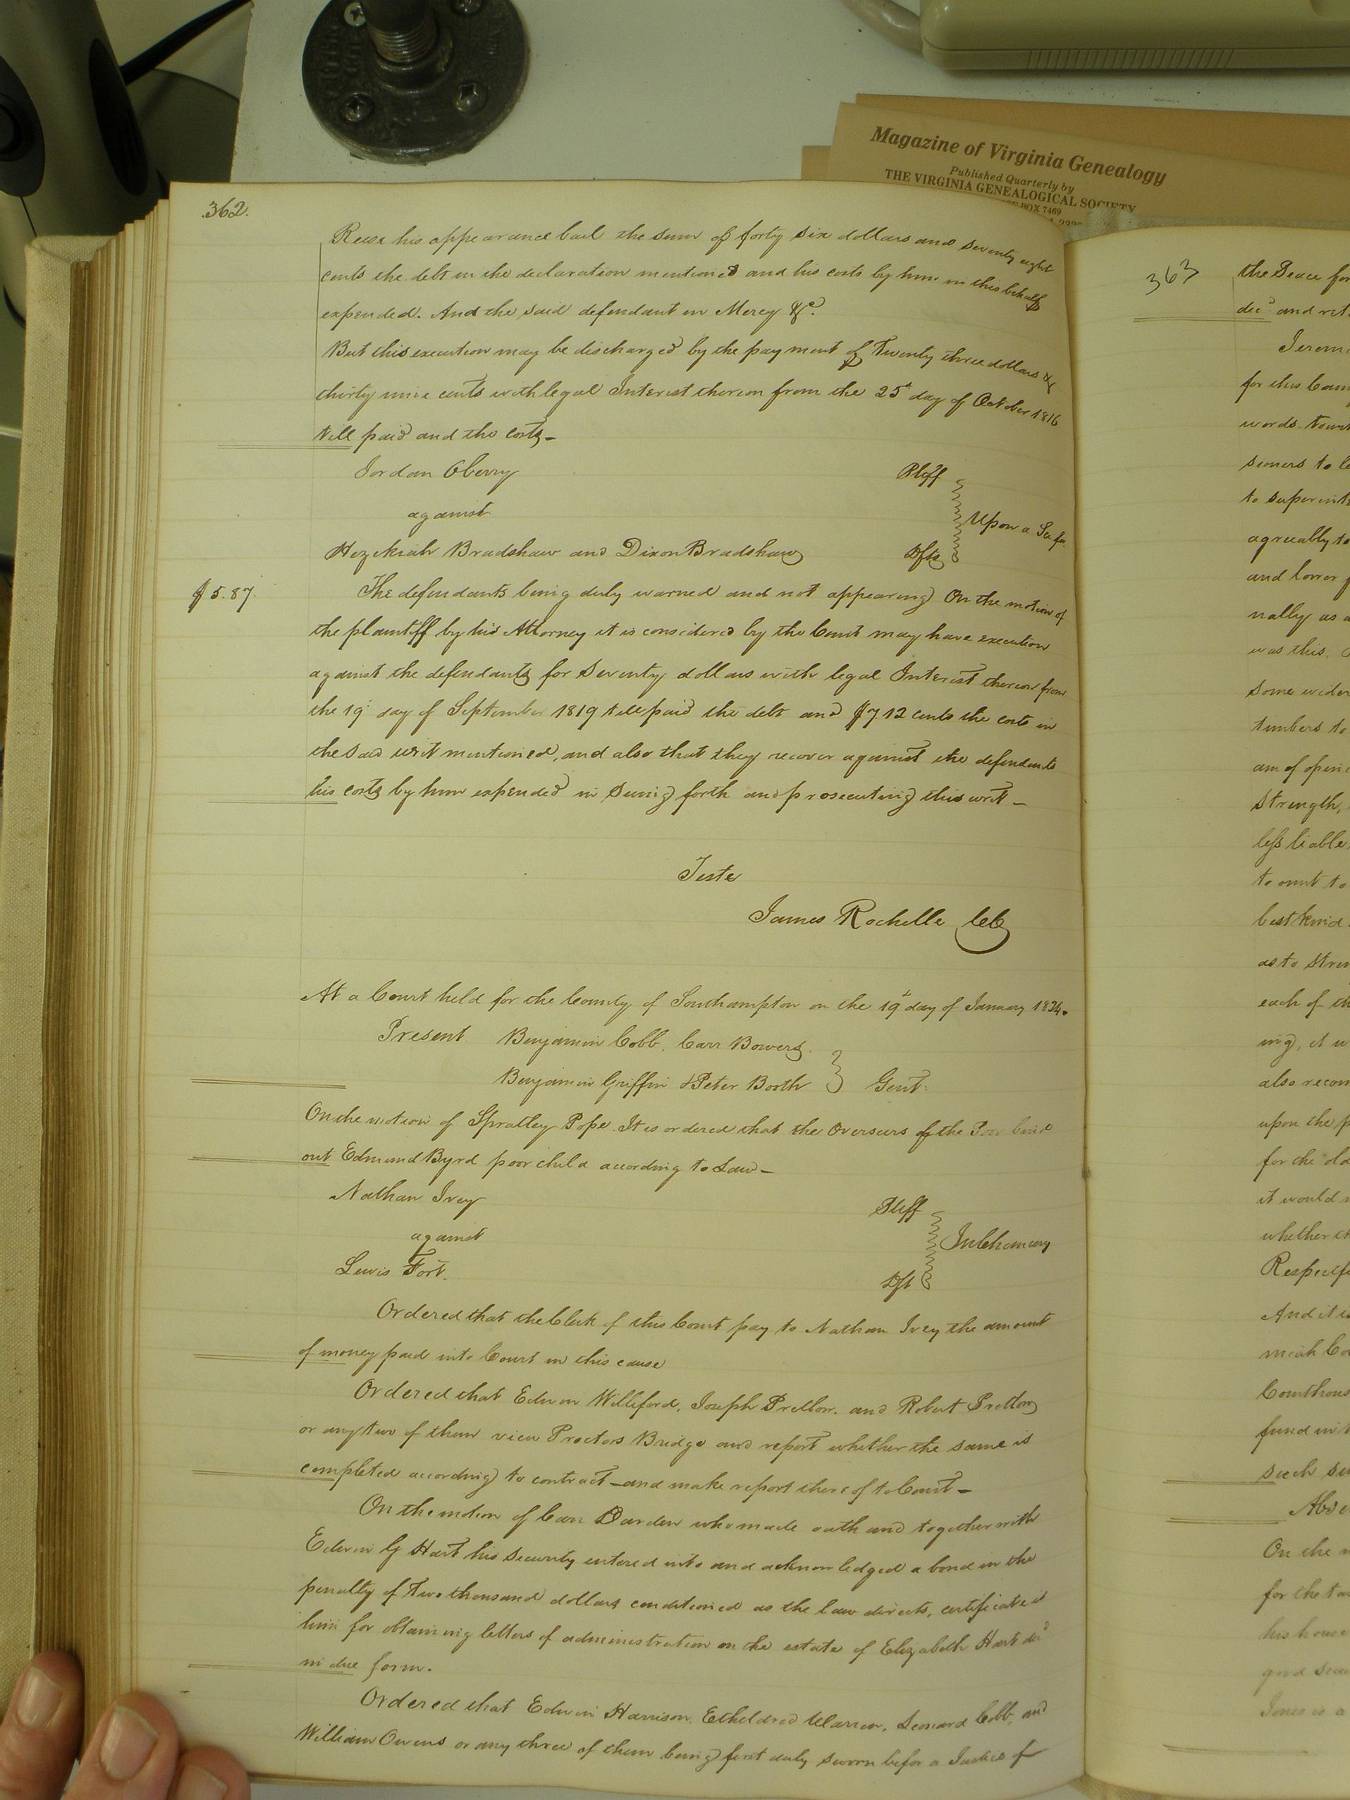 Magazine of Virginia Genealogy
Published Quarterly by
THE VIRGINIA GENEALOGICAL SOCIETY
BOX 7469
362.
Reese his appearance bail the sum of forty six dollars and seventy eight
cents the debt in the declaration mentioned and his costs by him in this behalf
expended. And the said defendant in Mercy &c.
But this execution may be discharged by the payment of Twenty three dollars &
thirty nine cents with legal Interest thereon from the 25t day of October 1816
till paid and the costs—
Jordan Oberry Pltff
against Upon a Sci fa
Hezekiah Bradshaw and Dixon Bradshaw Dfts
$5.87
The defendants being duly warned and not appearing On the motion of
the plaintiff by his Attorney it is considered by the Court may have execution
against the defendants for Seventy dollars with legal Interest thereon from
the 19 day of September 1819 till paid the debt and $7 12 cents the costs in
the said writ mentioned, and also that they recover against the defendants
his costs by him expended in Suing forth and prosecuting this writ—
Teste
James Rochelle
At a Court held for the County of Southampton on the 19t day of January 1824.
Present Benjamin Cobb, Carr Bowers
Benjamin Griffin & Peter Booth Gent.
On the motion of Spratley Pope It is ordered that the Overseers of the Poor bind
out Edmund Byrd poor child according to Law—
Nathan Ivey Pltff
against In Chancery
Lewis Fort. Dft
Ordered that the Clerk of this Court pay to Nathan Ivey the amount
of money paid into Court in this cause
Ordered that Edwin Williford, Joseph Pretlow, and Robert Pretlow
or any two of them view Proctors Bridge and report whether the same is
completed according to contract—and make report thereof to Court—
On the motion of Carr Darden who made oath and together with
Edwin G Hart his security entered into and acknowledged a bond in the
penalty of Two thousand dollars conditioned as the law directs, certificate is
him for obtaining letters of administration on the estate of Elizabeth Hart decd
in due form.
Ordered that Edwin Harrison, Etheldred Warren, Leonard Cobb, and
William Owens or any three of them being first duly sworn before a Justice of
363
the Peace for
decd and ret
for this
words
to superint
agreeably to
and lower
nally as a
was this.
Some
timbers to
am of opin
Strength,
less liable
to omit to
best kind
as to Stren
each of th
ing, it w
also recom
upon the p
for the old
it would
whether
Respectf
And it is
Courthous
fund
such
On the m
for the
his house
good
Jones is a